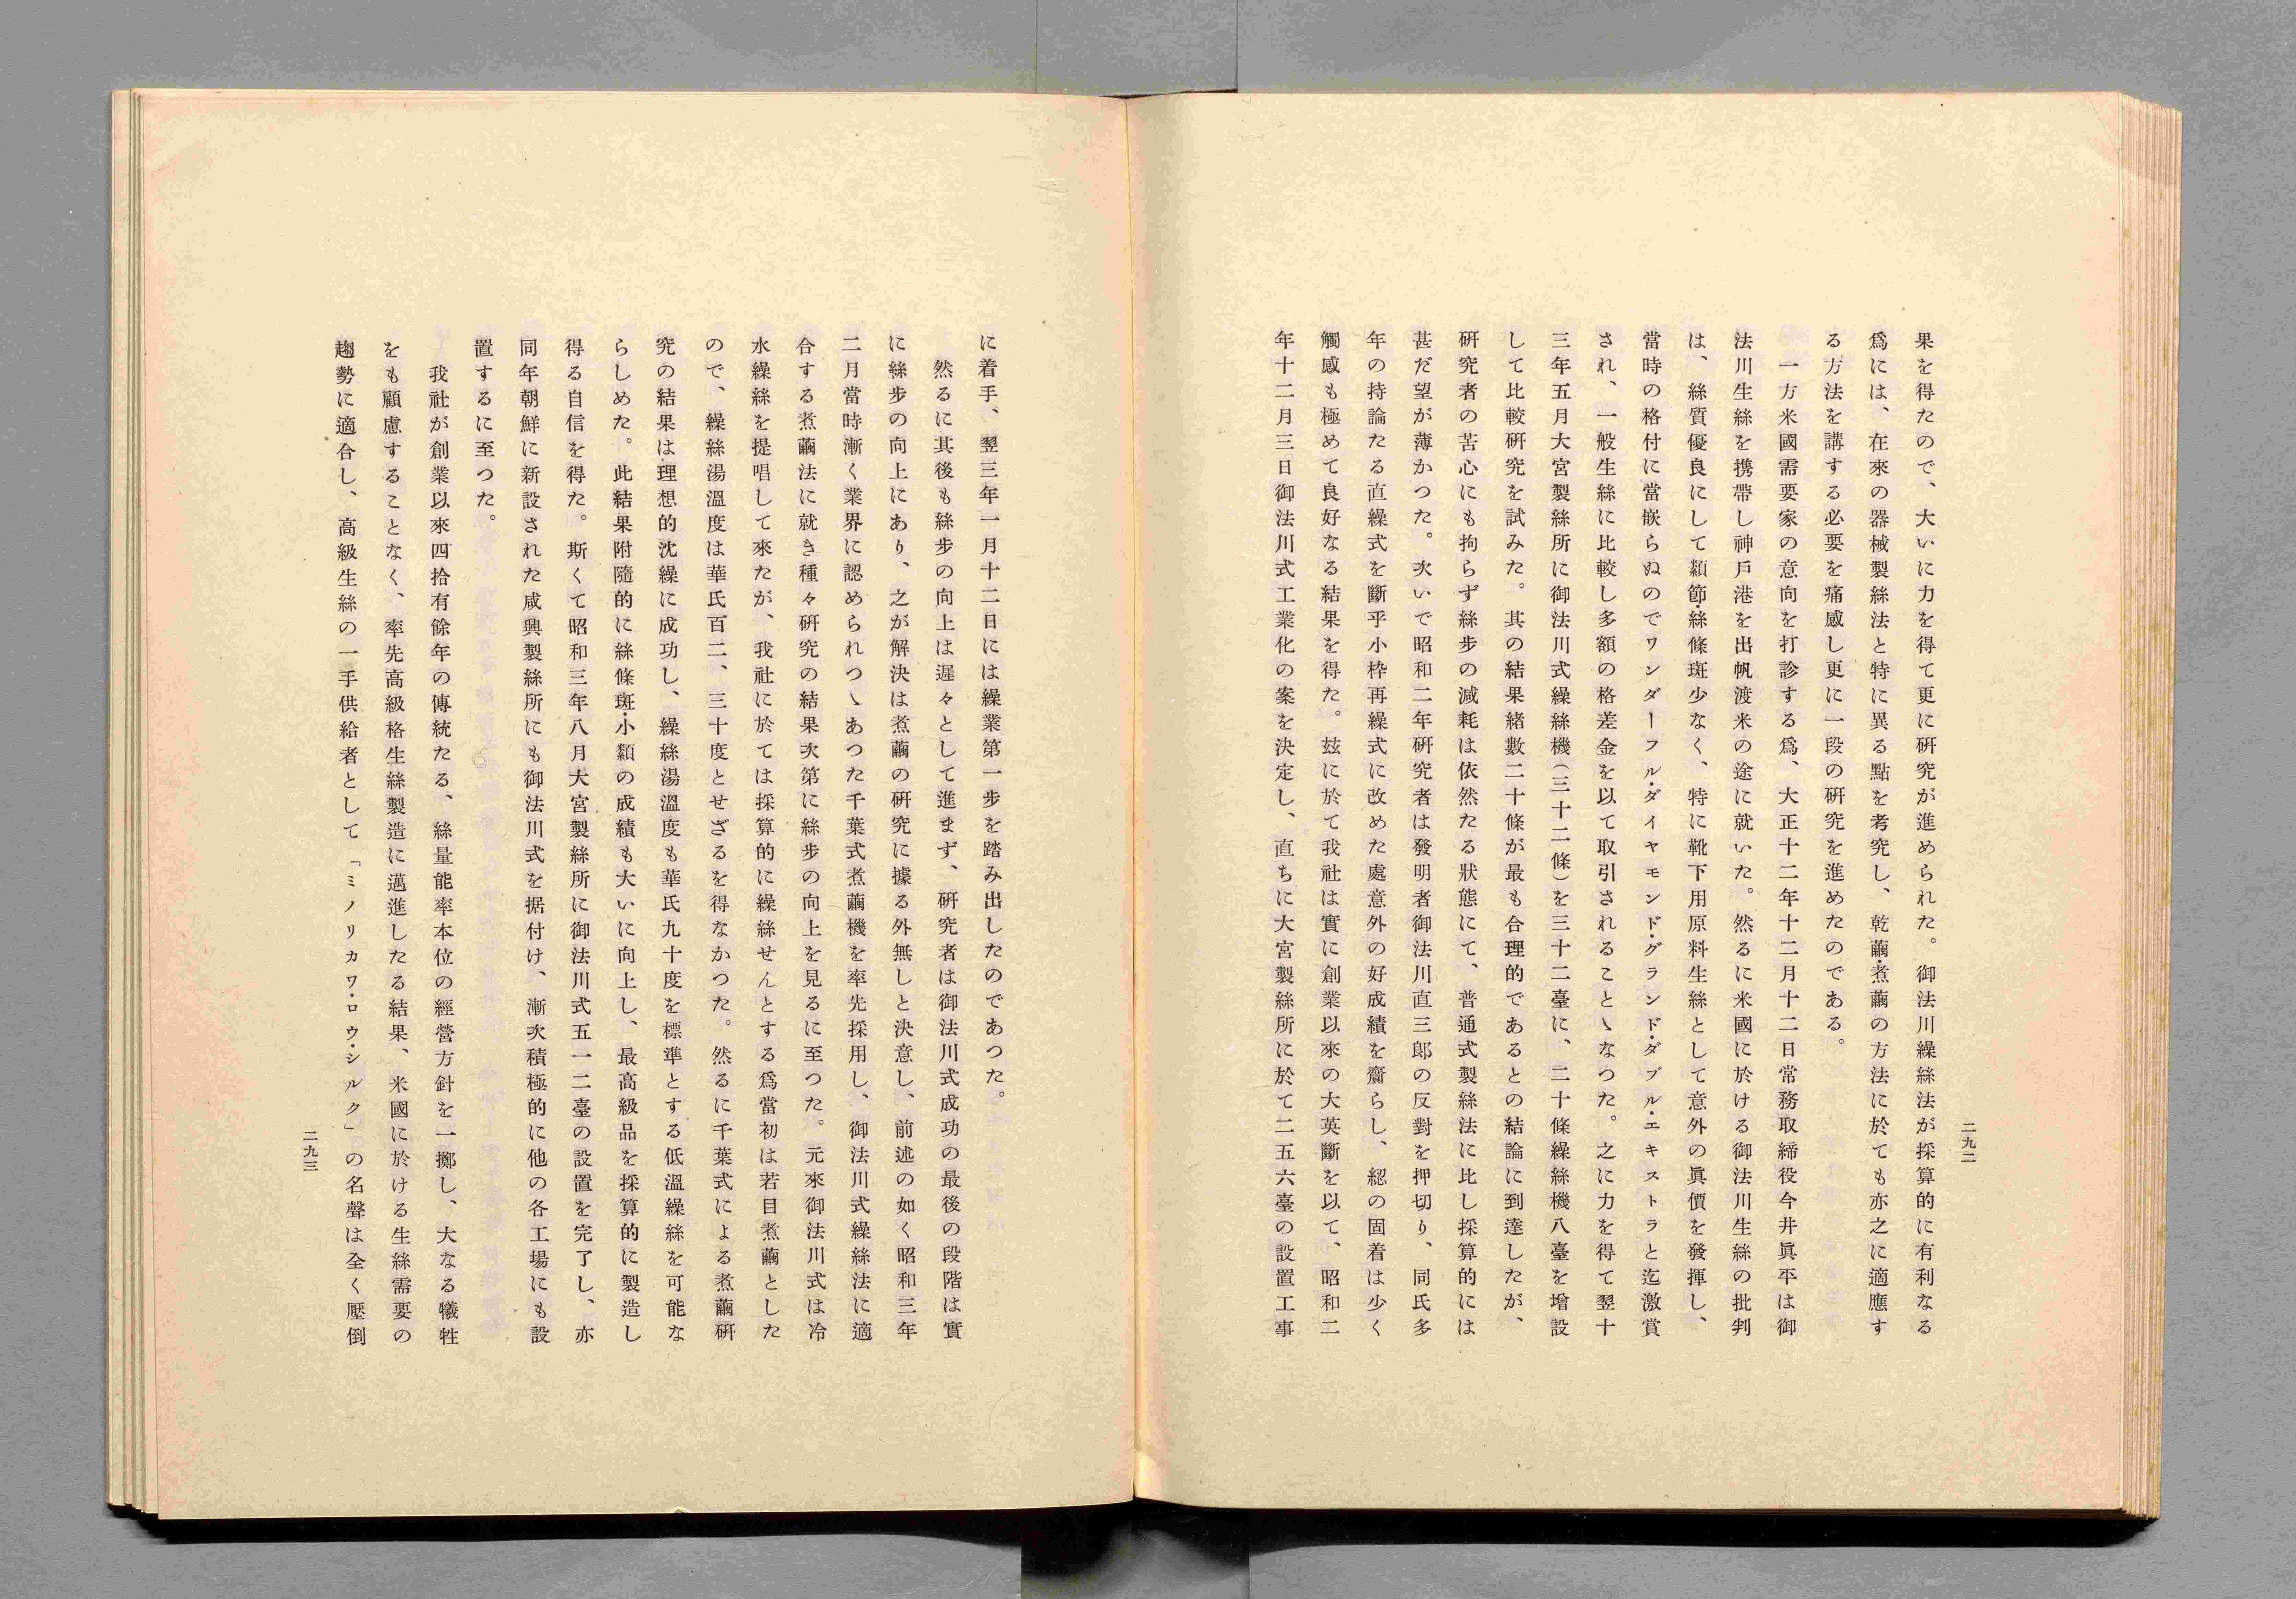 果を得たので、大いに力を得て更に硏究が進められた。御法川繰絲法が採算的に有利なる
爲には、在來の器械製絲法と特に異る點を考究し、乾繭・煮繭の方法に於ても亦之に適應す
る方法を講する必要を痛感し更に一段の硏究を進めたのである。
一方米國需要家の意向を打診する爲、大正十二年十二月十二日常務取締役今井眞平は御
法川生絲を携帶し神戶港を出帆渡米の途に就いた。然るに米國に於ける御法川生絲の批判
は、絲質優良にして纇節・絲條斑少なく、特に靴下用原料生絲として意外の眞價を發揮し、
當時の格付に當嵌らぬのでワンダーフル・ダイヤモンド・グランド・ダブル・エキストラと迄激賞
され、一般生絲に比較し多額の格差金を以て取引されることゝなつた。之に力を得て翌十
三年五月大宮製絲所に御法川式繰絲機（三十二條）を三十二臺に、二十條繰絲機八臺を增設
して比較硏究を試みた。其の結果緖數二十條が最も合理的であるとの結論に到達したが、
硏究者の苦心にも拘らず絲步の減耗は依然たる狀態にて、普通式製絲法に比し採算的には
甚だ望が薄かつた。次いで昭和二年硏究者は發明者御法川直三郎の反對を押切り、同氏多
年の持論たる直繰式を斷乎小枠再繰式に改めた處意外の好成績を齎らし、綛の固着は少く
觸感も極めて良好なる結果を得た。玆に於て我社は實に創業以來の大英斷を以て、昭和二
年十二月三日御法川式工業化の案を決定し、直ちに大宮製絲所に於て二五六臺の設置工事
二九二
に着手、翌三年一月十二日には繰業第一步を踏み出したのであつた。
然るに其後も絲步の向上は遲々として進まず、硏究者は御法川式成功の最後の段階は實
に絲步の向上にあり、之が解決は煮繭の硏究に據る外無しと決意し、前述の如く昭和三年
二月當時漸く業界に認められつゝあつた千葉式煮繭機を率先採用し、御法川式繰絲法に適
合する煮繭法に就き種々硏究の結果次第に絲步の向上を見るに至つた。元來御法川式は冷
水繰絲を提唱して來たが、我社に於ては採算的に繰絲せんとする爲當初は若目煮繭とした
ので、繰絲湯溫度は華氏百二、三十度とせざるを得なかつた。然るに千葉式による煮繭硏
究の結果は理想的沈繰に成功し、繰絲湯溫度も華氏九十度を標準とする低溫繰絲を可能な
らしめた。此結果附隨的に絲條斑・小纇の成績も大いに向上し、最高級品を採算的に製造し
得る自信を得た。斯くて昭和三年八月大宮製絲所に御法川式五一二臺の設置を完了し、亦
同年朝鮮に新設された咸興製絲所にも御法川式を据付け、漸次積極的に他の各工場にも設
置するに至つた。
我社が創業以來四拾有餘年の傳統たる、絲量能率本位の經營方針を一擲し、大なる犧牲
をも顧慮することなく、率先高級格生絲製造に邁進したる結果、米國に於ける生絲需要の
趨勢に適合し、高級生絲の一手供給者として「ミノリカワ・ロウ・シルク」の名聲は全く壓倒
二九三